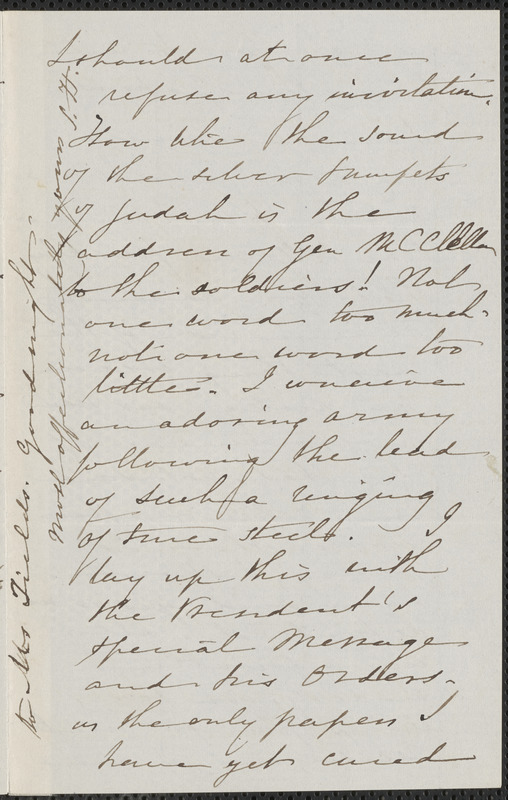 I should at once
refuse any invitation.
How like the sound
of the silver trumpets
of Judah is the
address of Gen McClellan
to the soldiers! Not
one word too much -
not one word too
little. I conceive
an adoring army
following the lead
of such a ringing
of true steel. I
lay up this with
the President's
special Message
and his Orders -
as the only papers I
have yet cared
to Mrs Fields. Goodnight -
most affectionately yours S. H.